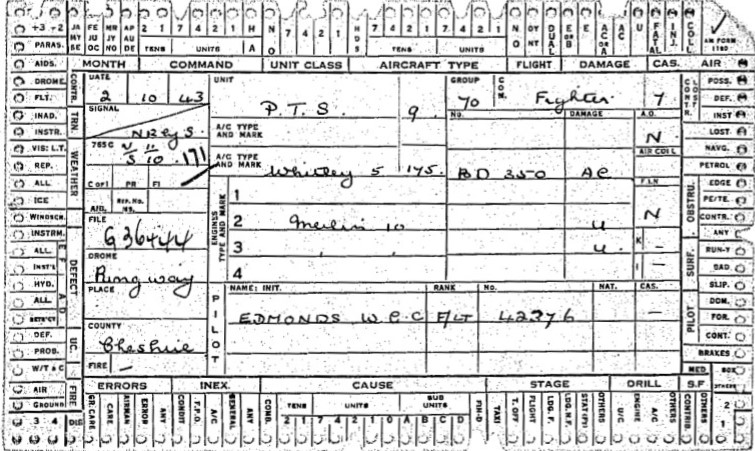 +3 -2 JA FE MR AP JU JY AU H N 7 4 2 1 7 4 2 1 FATAL INJ. COLL.
PARAS. TENS UNITS A TENS UNITS AM FORM 1180
AIDS. MONTH COMMAND UNIT CLASS AIRCRAFT TYPE FLIGHT DAMAGE CAS. AIR
DROME. CONTR. DATE UNIT GROUP COM. CONTR. LOST POSS.
FLT. 2 10 43 P.T.S. 9. 70 Fighter 7 DEF.
INAD. TRN. SIGNAL A/C TYPE AND MARK No. DAMAGE A.O. INST
INSTR. N LOST.
VIS: L.T. WEATHER 765C 5 10 .171 A/C TYPE AND MARK AIR COLL NAVG.
REP. Whitley 5 175. BD 350 AC PETROL
ALL C OF I PR FI ENGINES TYPE AND MARK 1 OBSTRU. EDGE
ICE A/B. REP. No. PE/TE.
WINDSCN. FILE 2 Merlin 10 4 N CONTR.
INSTRM. DEFECT G36444 3 " " 4. K – ANY
ALL DROME 4 I – SURF. RUN-Y
INST'S Ringway BAD
HYD. PLACE PILOT NAME: INIT. RANK No. NAT. CAS. SLIP.
ALL EDMONDS W.G.C F/LT 42276 – PILOT DOM.
COUNTY FOR.
DEF. UC. Cheshire CONT.
PROB. FIRE – BRAKES
W/T & C MED BOX
AIR FIRE ERRORS INEX. CAUSE STAGE DRILL S.F OTHERS
GROUND GR. CARE CARE. AIRMAN ERROR ANY CONDIT F.P.O. A/C GENERAL ANY COMB. TENS UNITS SUB UNITS TAXI T. OFF FLIGHT LDG. F. LDG. N.F. OTHERS U/C ENGINE A/C OTHERS CONTRIB. OTHERS 2
3 4 DIG 2 1 7 4 2 1 0 A B C D 1